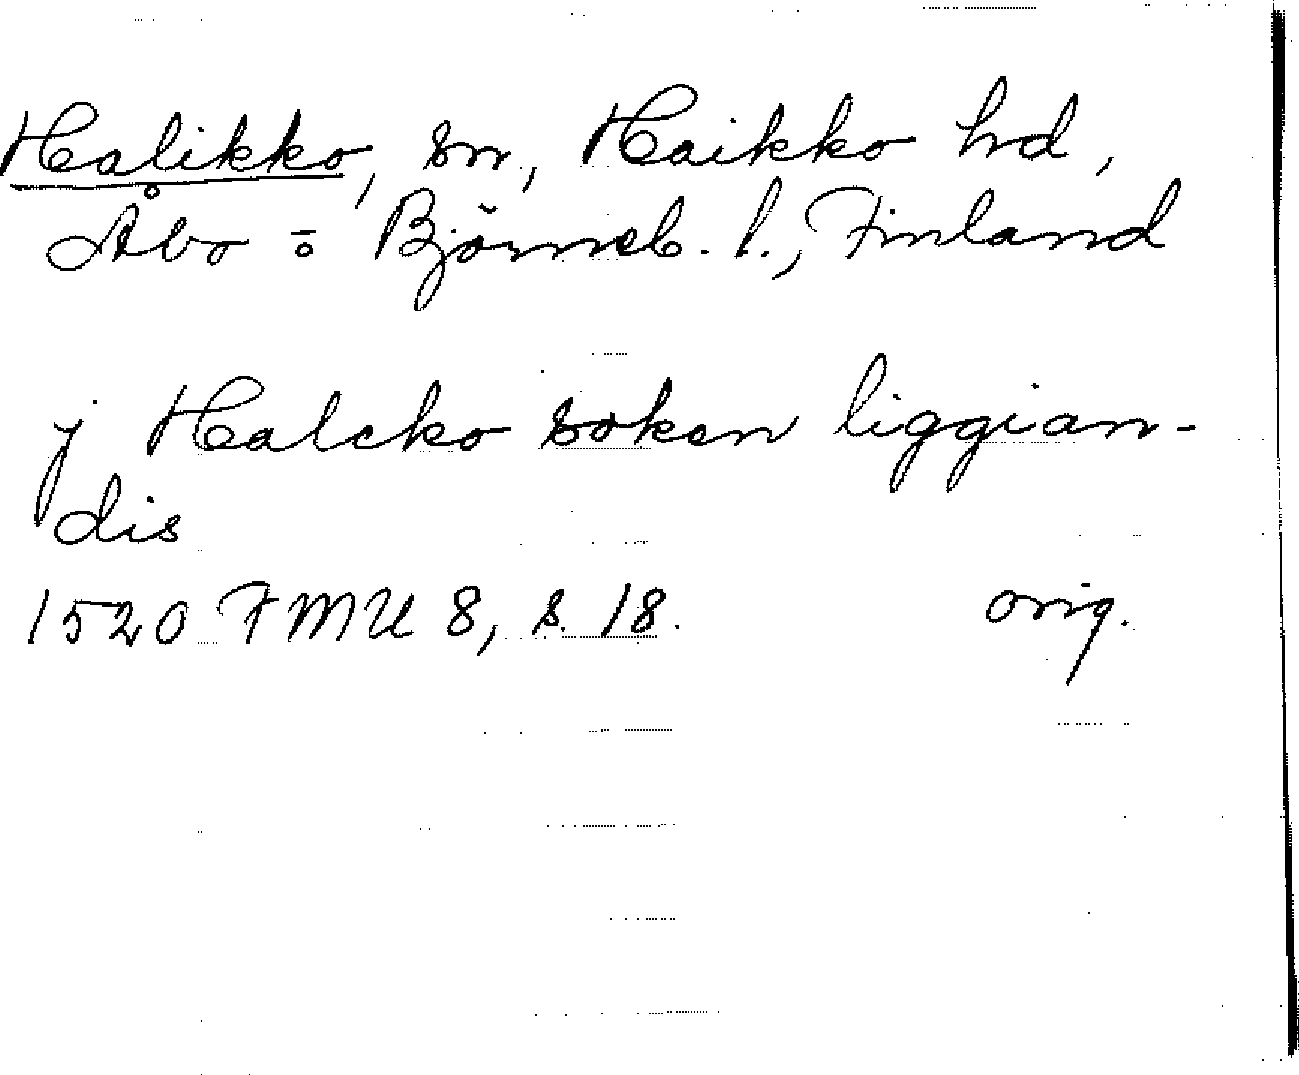 Halikko, sn, Haikko hd,
Åbo ō Björneb. l., Finland
j Halcko soken liggian-
dis
1520 FMU 8, s. 18. orig.